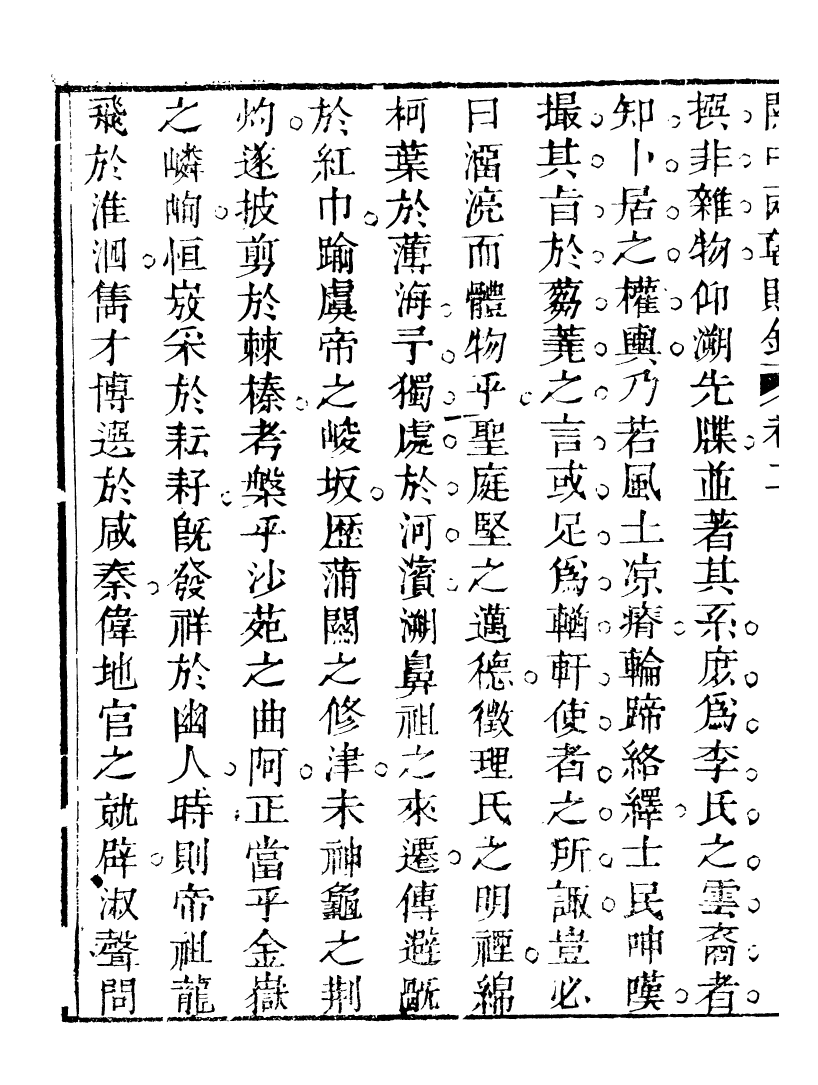 關中兩朝賦鈔 卷二
撰非雜物仰溯先牒並著其系庶爲李氏之雲裔者
知卜居之權輿乃若風土凉瘠輪蹄絡繹士民呻嘆
撮其旨於蒭蕘之言或足爲輶軒使者之所諏豈必
曰而體物乎聖庭堅之邁德徵理氏之明禋綿
柯葉於薄海孑獨處於河濱溯鼻祖之來遷傳避
於紅巾踰虞帝之崚坂歷蒲關之修津未神龜之荆
灼遂披剪於棘榛考槃乎沙苑之曲阿正當乎金嶽
之嶙峋恒采於耘耔旣發祥於幽人時則帝祖龍
飛於淮泗雋才博選於咸秦偉地官之就辟淑聲問